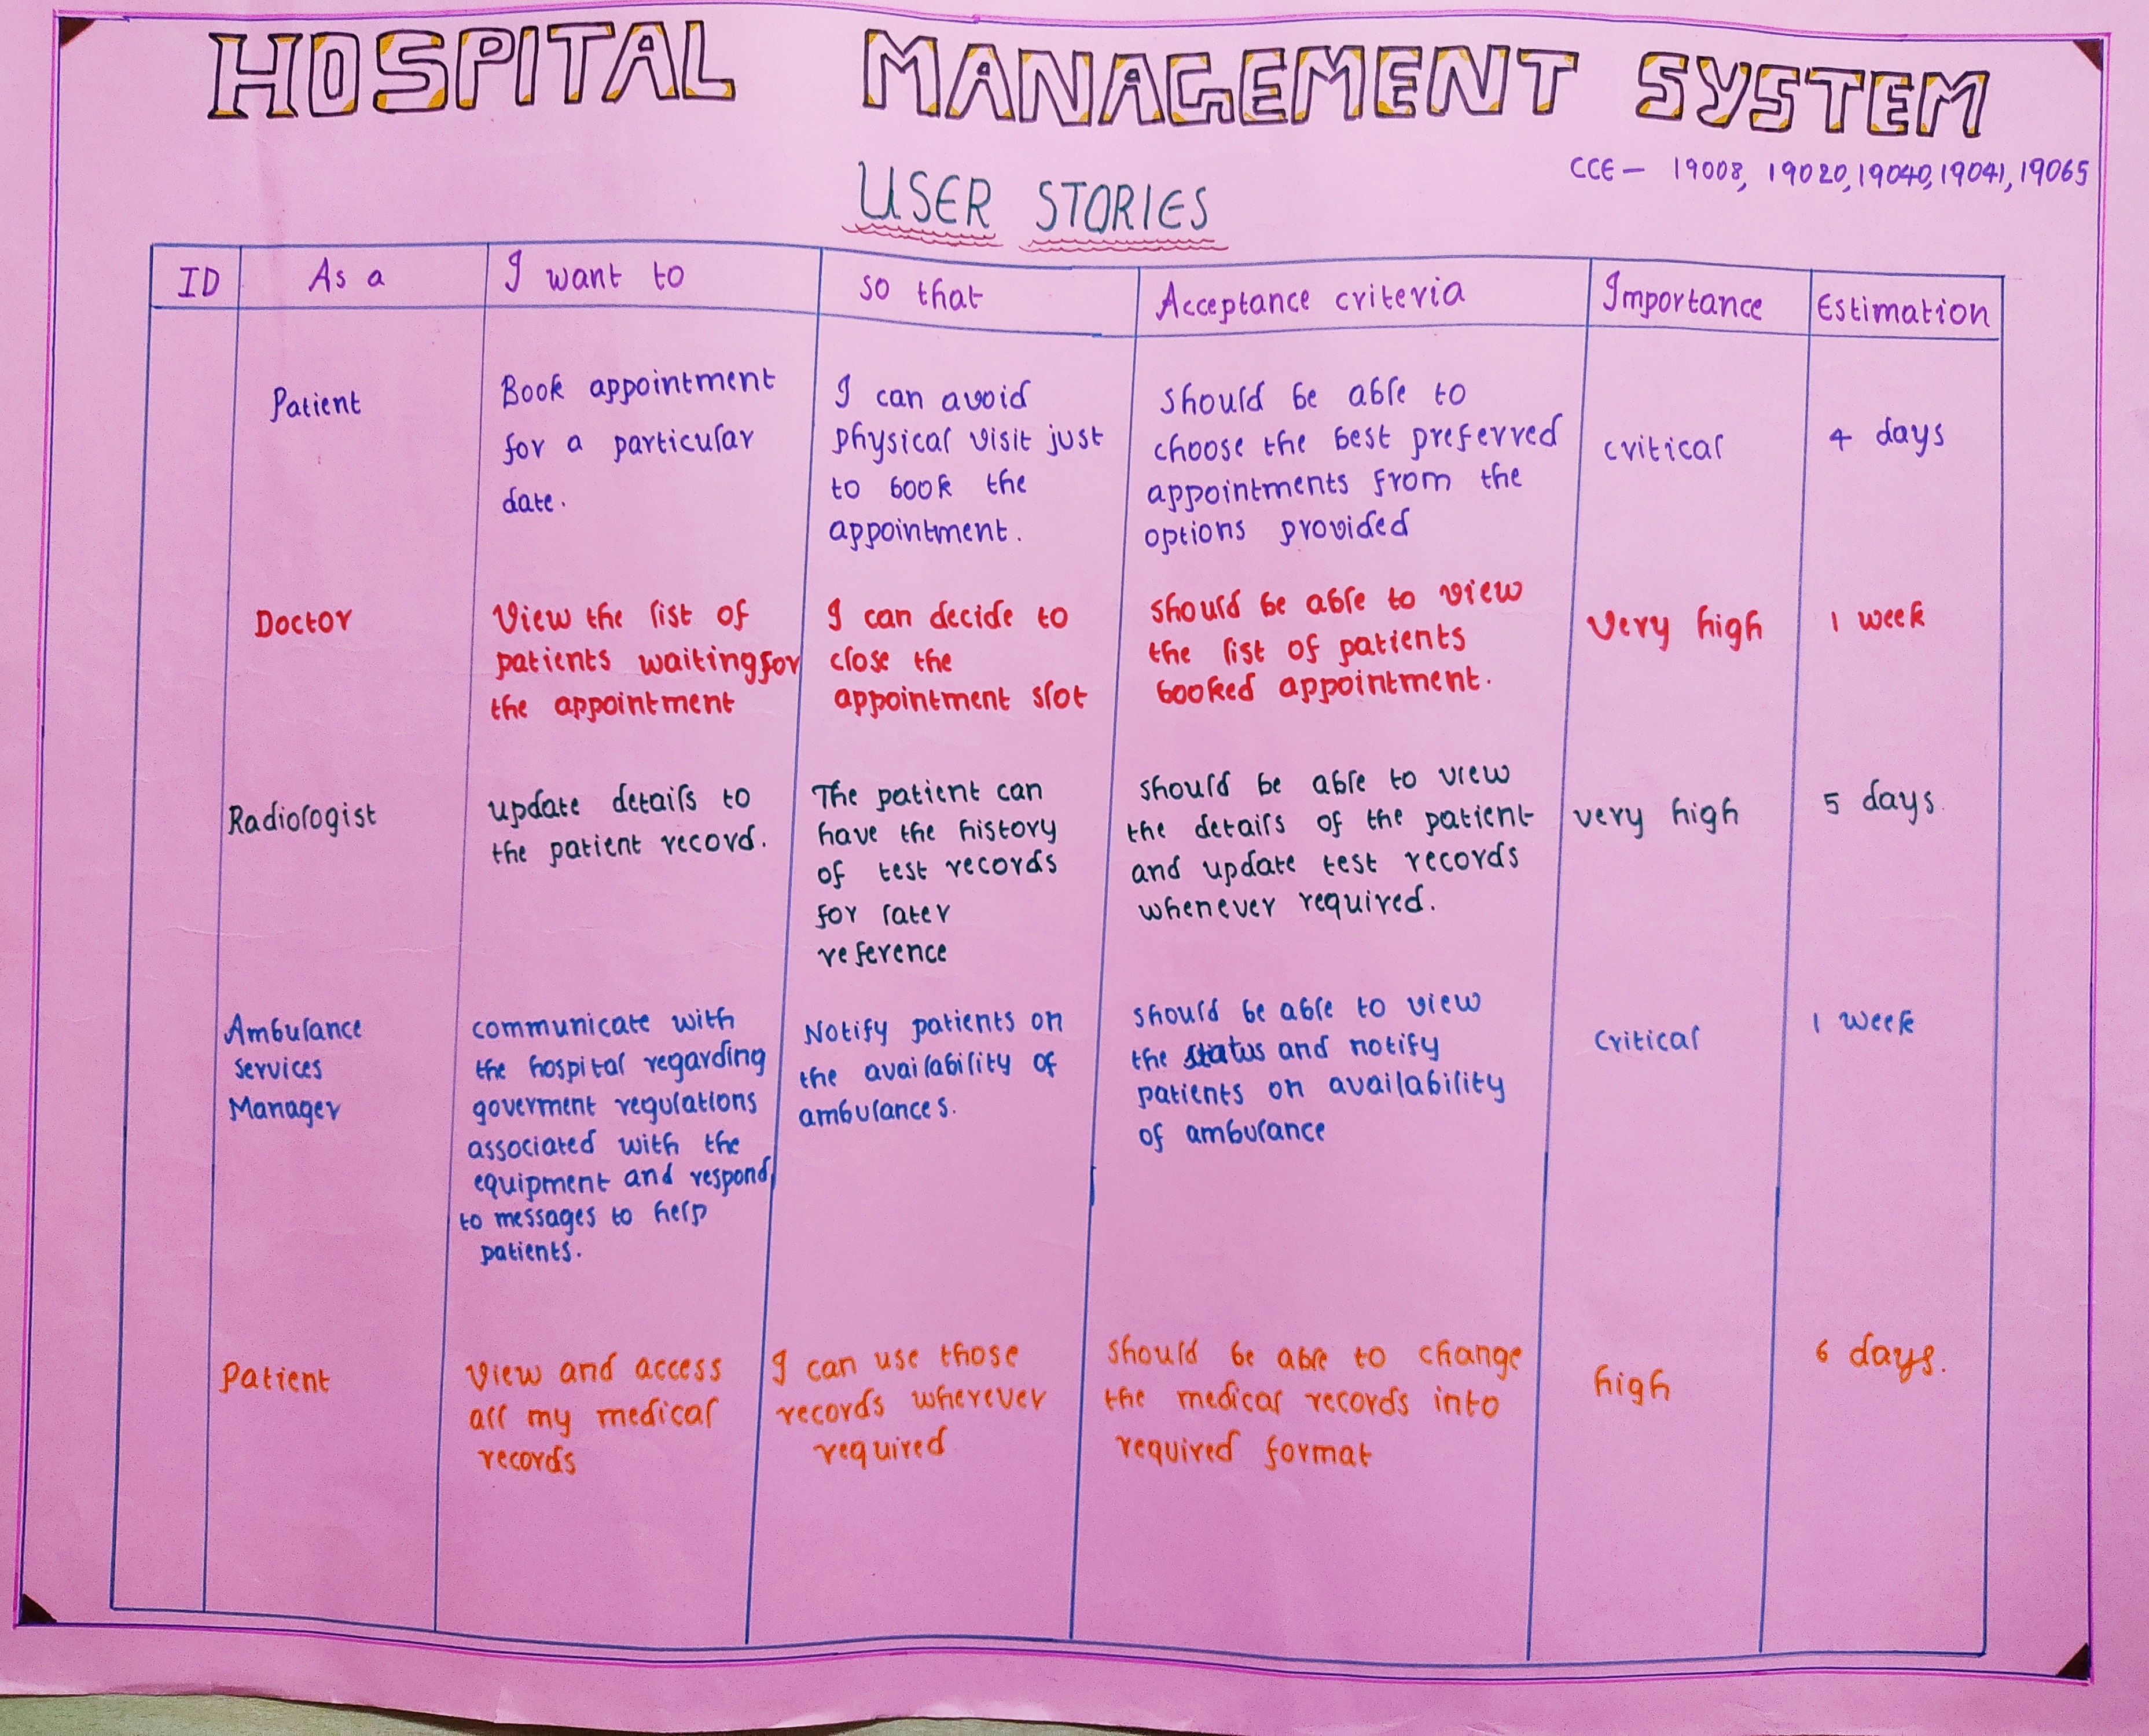 HOSPITAL MANAGEMENT SYSTEM
CCE - 19008, 19020, 19040, 19041, 19065
USER STORIES
ID
As a
I want to
so that
Acceptance criteria
Importance
Estimation
Patient
Book appointment
for a particular
date.
I can avoid
physical visit just
to book the
appointment.
should be able to
choose the best preferred
appointments from the
options provided
critical
4 days
Doctor
View the list of
patients waiting for
the appointment
I can decide to
close the
appointment slot
should be able to view
the list of patients
booked appointment.
Very high
1 week
Radiologist
update details to
the patient record.
The patient can
have the history
of test records
for later
reference
should be able to view
the details of the patient
and update test records
whenever required.
very high
5 days.
Ambulance
Services
Manager
communicate with
the hospital regarding
goverment regulations
associated with the
equipment and respond
to messages to help
patients.
Notify patients on
the availability of
ambulances.
should be able to view
the status and notify
patients on availability
of ambulance
Critical
1 week
Patient
View and access
all my medical
records
I can use those
records wherever
required
should be able to change
the medical records into
required format
high
6 days.